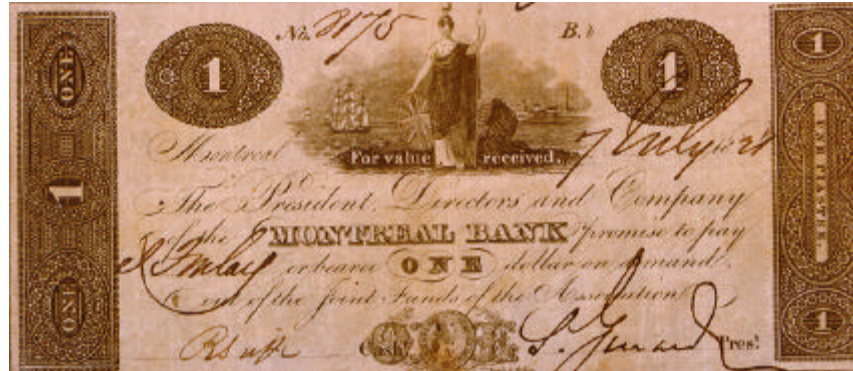 ONE 1 ONE
1 No. 3175 B. 1
Montreal For value received. 7 July 1821
The President, Directors and Company
of the MONTREAL BANK promise to pay
or bearer ONE dollar on demand
out of the Joint Funds of the Association
Cash.r Pres.t
1 UNE PIASTRE 1